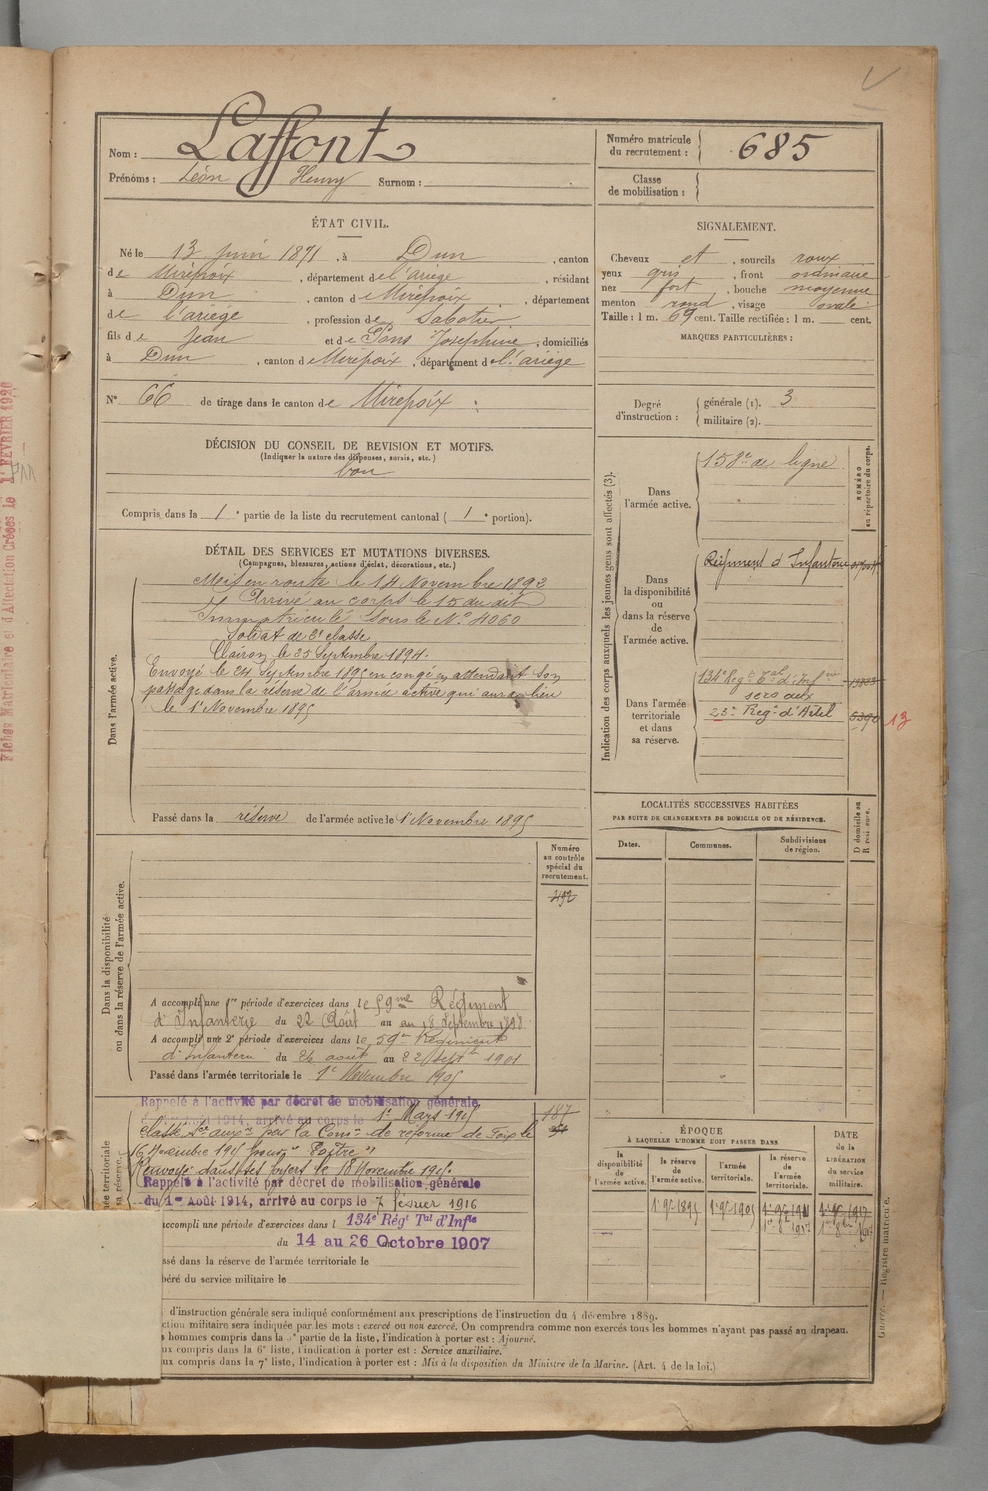 Nom : Laffont
Prénoms : Léon Henry Surnom :
Numéro matricule
du recrutement : 685
Classe
de mobilisation :
ÉTAT CIVIL.
Né le 13 juin 1871, à Dun, canton
de Mirepoix, département de l'ariège, résidant
à Dun, canton de Mirepoix, département
de l'ariège, profession de Sabotier
fils de Jean et de Pons Joséphine, domiciliés
à Dun, canton de Mirepoix, département de l'ariège
N° 66 de tirage dans le canton de Mirepoix
SIGNALEMENT.
Cheveux et, sourcils roux
yeux gris, front ordinaire
nez fort, bouche moyenne
menton rond, visage ovale
Taille : 1 m. 69 cent. Taille rectifiée : 1 m. cent.
MARQUES PARTICULIÈRES :
Degré
d'instruction :
générale (1). 3
militaire (2).
DÉCISION DU CONSEIL DE REVISION ET MOTIFS.
(Indiquer la nature des dispenses, sursis, etc.)
bon
Compris dans la 1e partie de la liste du recrutement cantonal ( 1e portion).
DÉTAIL DES SERVICES ET MUTATIONS DIVERSES.
(Campagnes, blessures, actions d'éclat, décorations, etc.)
Dans l'armée active.
Mis en route le 14 Novembre 1892
Arrivé au corps le 15 du dit
Immatriculé sous le N° 4060
Soldat de 2e classe
Clairon le 25 Septembre 1894.
Envoyé le 24 Septembre 1895 en congé en attendant son
passage dans la réserve de l'armée active qui aura lieu
le 1er Novembre 1895
Passé dans la réserve de l'armée active le 1er Novembre 1895
Indication des corps auxquels les jeunes gens sont affectés (3).
NUMÉRO
au répertoire du corps.
Dans
l'armée active.
158e de ligne
Dans
la disponibilité
ou
dans la réserve
de
l'armée active.
Régiment d'Infanterie
Dans l'armée
territoriale
et dans
sa réserve.
134e Régt Tal d'Inf rie
serv aux
23e Regt d'Artel
5390 13
LOCALITÉS SUCCESSIVES HABITÉES
PAR SUITE DE CHANGEMENTS DE DOMICILE OU DE RÉSIDENCE.
Dates. Communes. Subdivisions
de région.
D domicile ou
R résidence.
Dans la disponibilité
ou dans la réserve de l'armée active.
Numéro
au contrôle
spécial du
recrutement.
492
A accompli une 1re période d'exercices dans le 59me Régiment
d'Infanterie du 22 Août au 18 Septembre 1898
A accompli une 2e période d'exercices dans le 59e Régiment
d'Infanterie du 26 août au 22 Septbre 1901
Passé dans l'armée territoriale le 1er Novembre 1905
Rappelé à l'activité par décret de mobilisation générale
1914, arrivé au corps le 1er Mars 1915
187
Classé Sce auxre par la Comon de réforme de Foix le
16 Novembre 1915 pour "Goître"
Renvoyé dans ses foyers le 18 Novembre 1915.
Rappelé à l'activité par décret de mobilisation générale
du 1er Août 1914, arrivé au corps le 7 février 1916
accompli une période d'exercices dans l 134e Régt Tal d'Infie
du 14 au 26 Octobre 1907
ssé dans la réserve de l'armée territoriale le
béré du service militaire le
ÉPOQUE
À LAQUELLE L'HOMME DOIT PASSER DANS
DATE
de la
LIBÉRATION
du service
militaire.
la
disponibilité
de
l'armée active.
la réserve
de
l'armée active.
l'armée
territoriale.
la réserve
de
l'armée
territoriale.
1er 9bre 1895 1er 9bre 1905 1er 9bre 1911 1er 9bre 1917
d'instruction générale sera indiqué conformément aux prescriptions de l'instruction du 4 décembre 1889.
ction militaire sera indiquée par les mots : exercé ou non exercé. On comprendra comme non exercés tous les hommes n'ayant pas passé au drapeau.
s hommes compris dans la 5e partie de la liste, l'indication à porter est : Ajourné.
ux compris dans la 6e liste, l'indication à porter est : Service auxiliaire.
ux compris dans la 7e liste, l'indication à porter est : Mis à la disposition du Ministre de la Marine. (Art. 4 de la loi.)
Guerre. — Registre matricule.
Fiches Matriculaire et d'Affectation Créées le 1er FÉVRIER 1920